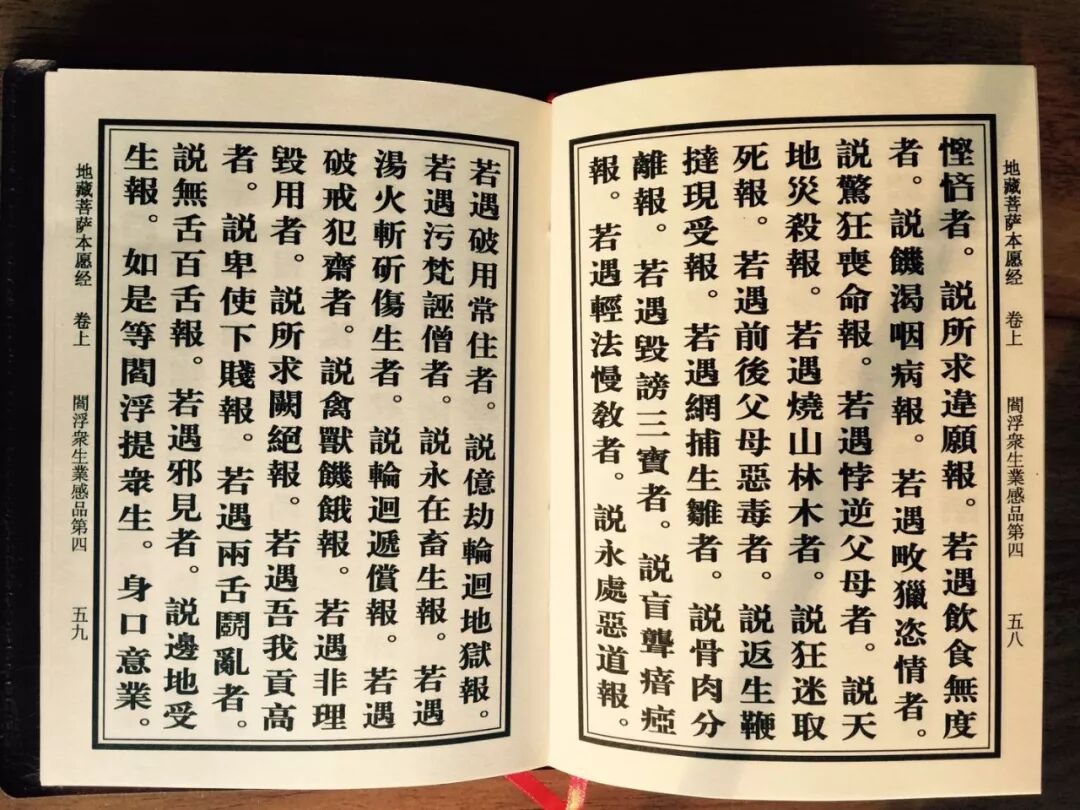 地藏菩萨本愿经 卷上 閻浮衆生業感品第四 五八
慳悋者。説所求違願報。若遇飲食無度
者。説饑渴咽病報。若遇畋獵恣情者。
説驚狂喪命報。若遇悖逆父母者。説天
地災殺報。若遇燒山林木者。説狂迷取
死報。若遇前後父母惡毒者。説返生鞭
撻現受報。若遇網捕生雛者。説骨肉分
離報。若遇毀謗三寶者。説盲聾瘖瘂
報。若遇輕法慢敎者。説永處惡道報。
若遇破用常住者。説億劫輪迴地獄報。
若遇污梵誣僧者。説永在畜生報。若遇
湯火斬斫傷生者。説輪迴遞償報。若遇
破戒犯齋者。説禽獸饑餓報。若遇非理
毀用者。説所求闕絕報。若遇吾我貢高
者。説卑使下賤報。若遇兩舌鬪亂者。
説無舌百舌報。若遇邪見者。説邊地受
生報。如是等閻浮提衆生。身口意業。
地藏菩萨本愿经 卷上 閻浮衆生業感品第四 五九